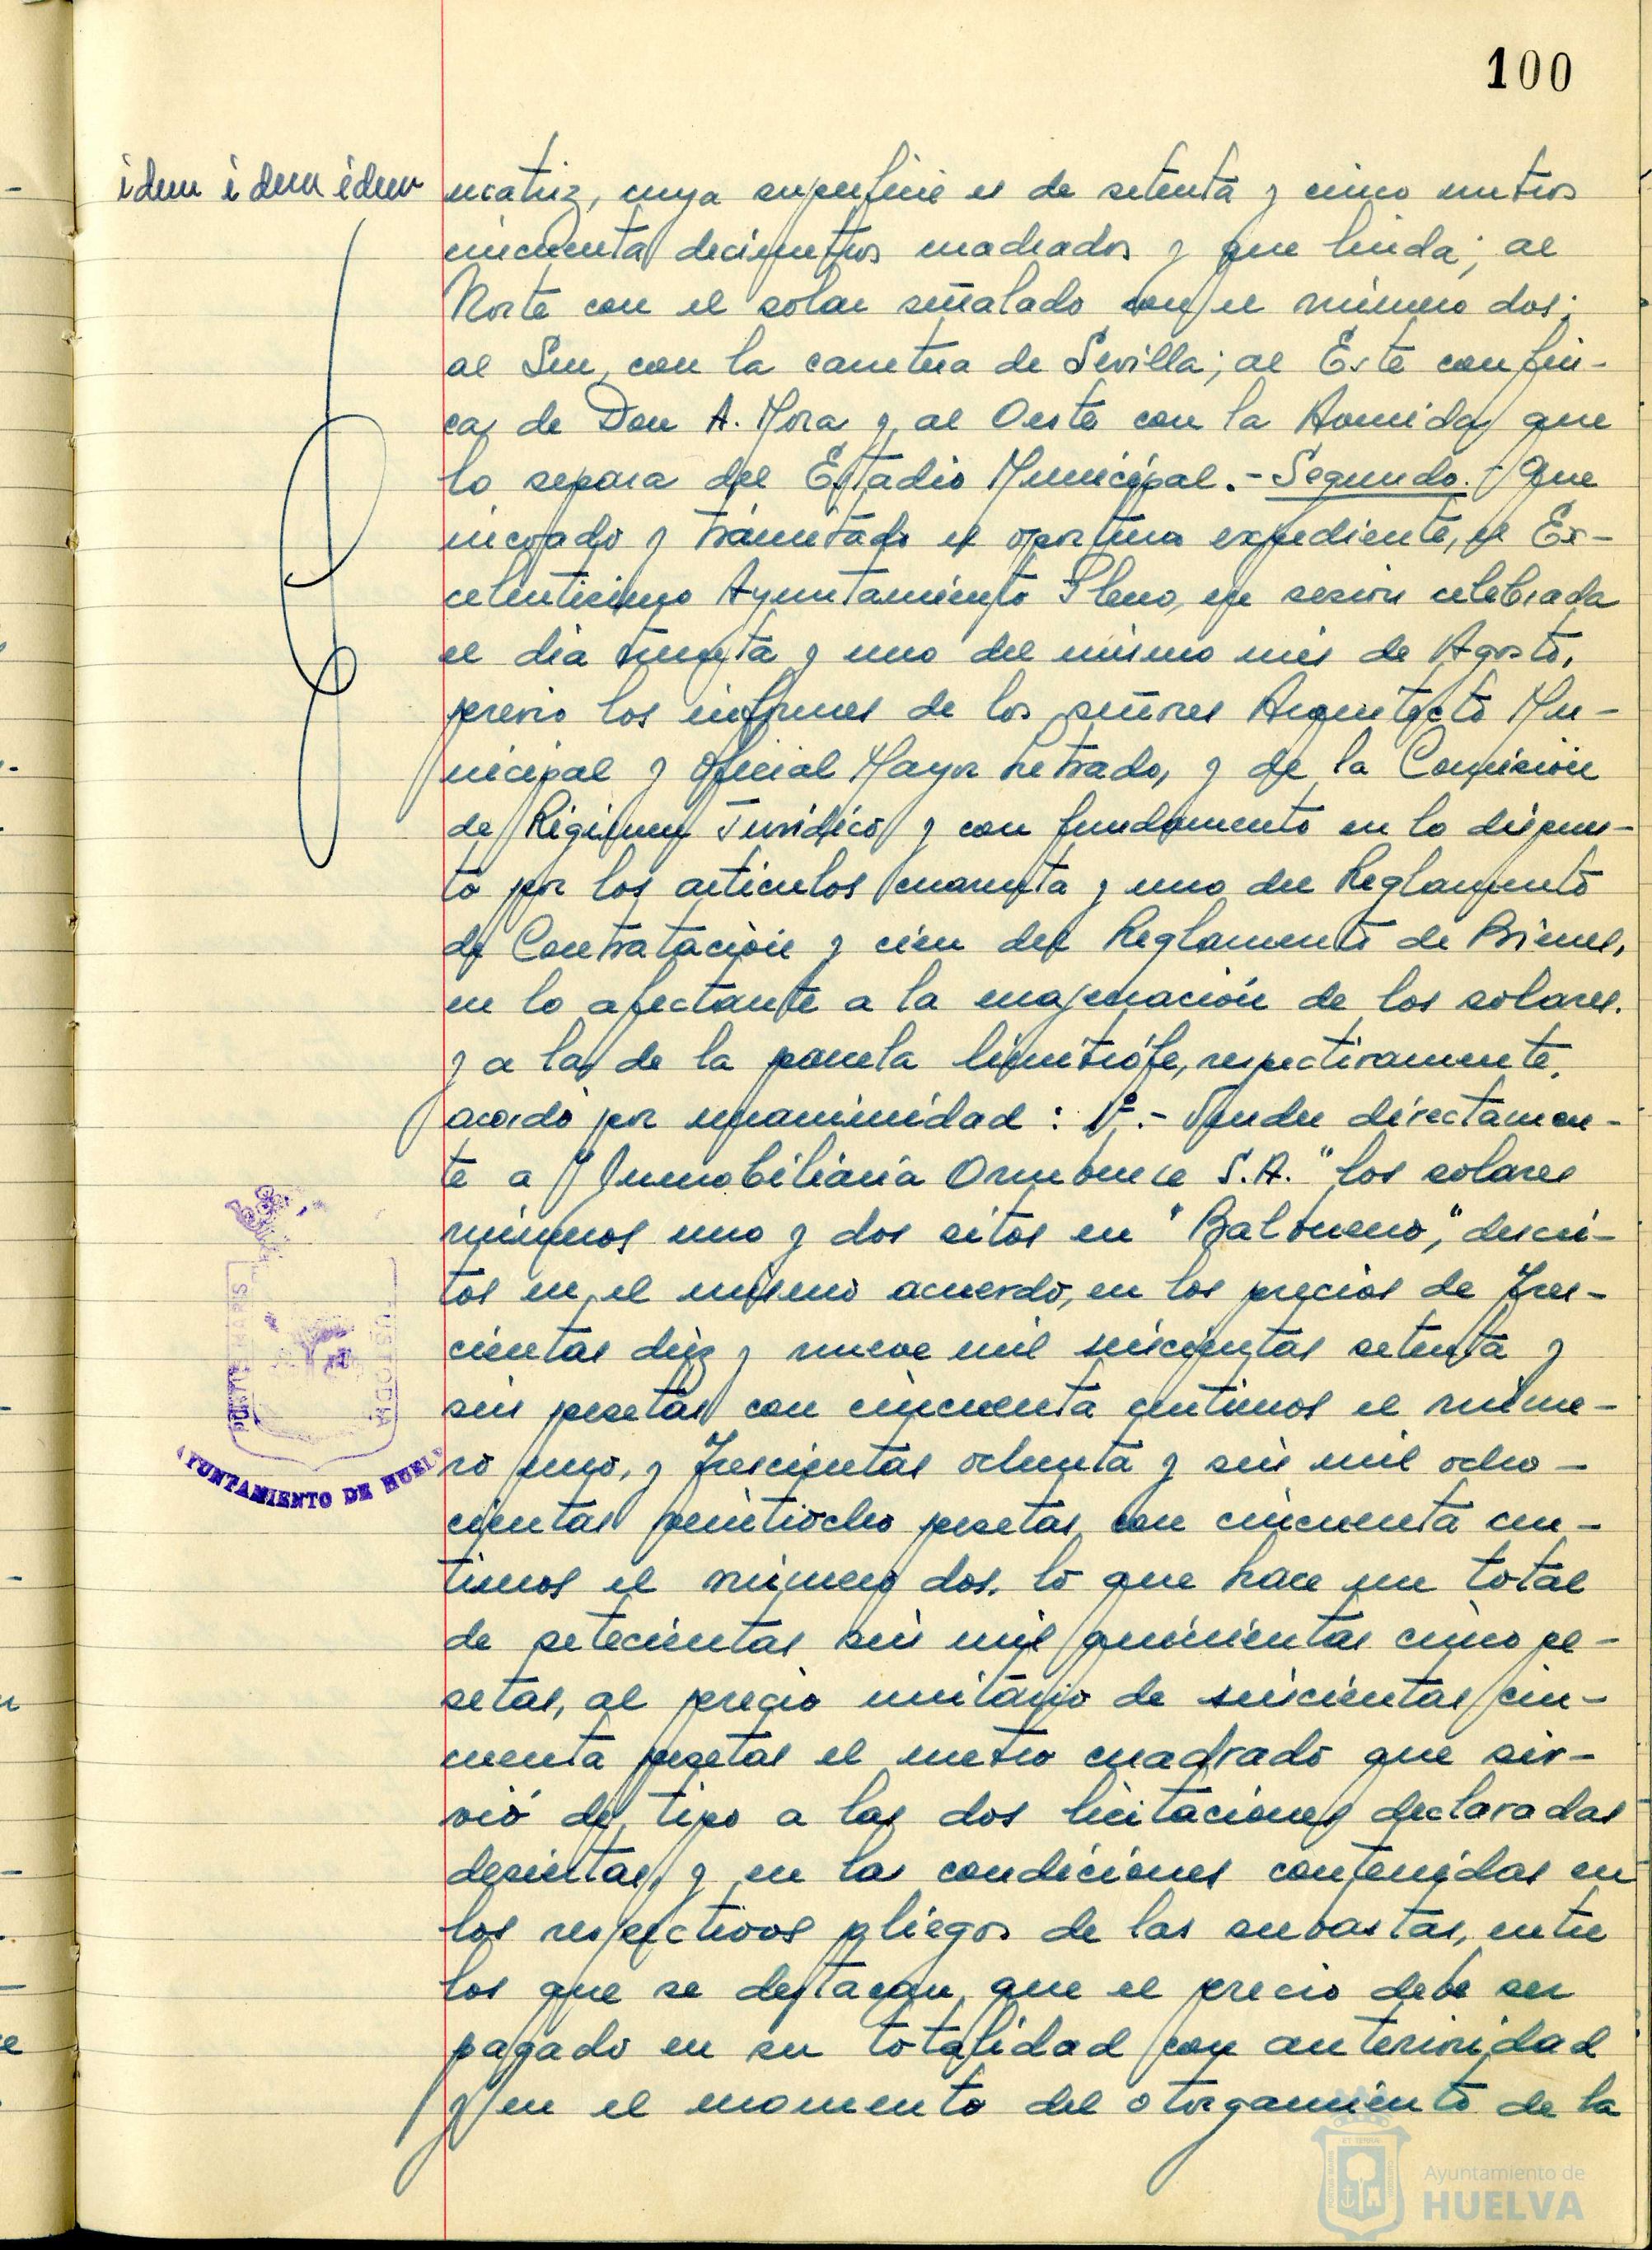 100
idem idem idem
matriz, cuya superficie es de setenta y cinco metros
cincuenta decimetros cuadrados y que linda; al
Norte con el solar señalado con el número dos;
al Sur, con la carretera de Sevilla; al Este con fin-
ca de Don A. Mora y al Oeste con la Avenida que
lo separa del Estadio Municipal.- Segundo.- Que
incoado y tramitado el oportuno expediente, el Ex-
celentisimo Ayuntamiento Pleno, en sesión celebrada
el dia treinta y uno del mismo mes de Agosto,
previo los informes de los señores Arquitecto Mu-
nicipal y Oficial Mayor Letrado, y de la Comisión
de Régimen Juridico y con fundamento en lo dispues-
to por los articulos cuarenta y uno del Reglamento
de Contratación y cien del Reglamento de Bienes,
en lo afectante a la enajenación de los solares.
y a las de la parcela limitrófe, respectivamente,
acordó por unanimidad: 1º.- Vender directamen-
te a "Inmobiliaria Orumbrice S.A." los solares
números uno y dos sitos en "Balbueno", descri-
tos en el mismo acuerdo, en los precios de Tres-
cientas diez y nueve mil seiscientas setenta y
seis pesetas con cincuenta centimos el núme-
ro uno, y Trescientas ochenta y seis mil ocho-
cientas veintiocho pesetas con cincuenta cen-
timos el número dos, lo que hace un total
de setecientas seis mil quinientas cinco pe-
setas, al precio unitario de seiscientas cin-
cuenta pesetas el metro cuadrado que sir-
vió de tipo a las dos licitaciones declaradas
desiertas, y en las condiciones contenidas en
los respectivos pliegos de las subastas, entre
los que se destacan, que el precio debe ser
pagado en su totalidad con anterioridad
y en el momento del otorgamiento de la
PORTUS MARIS
CUSTODIA
AYUNTAMIENTO DE HUEL
Ayuntamiento de
HUELVA